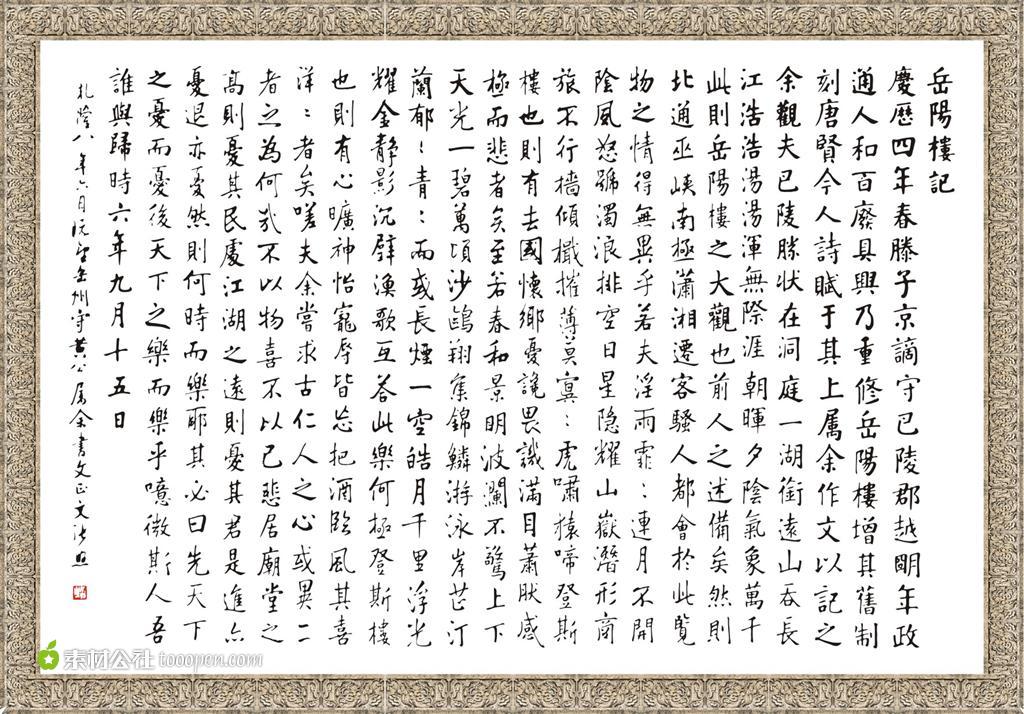 岳陽樓記
慶歷四年春滕子京謫守巴陵郡越明年政
通人和百廢具興乃重修岳陽樓增其舊制
刻唐賢今人詩賦于其上属余作文以記之
余觀夫巴陵勝状在洞庭一湖銜遠山吞長
江浩浩湯湯渾無際涯朝暉夕陰氣象萬千
此則岳陽樓之大觀也前人之述備矣然則
北通巫峽南極瀟湘遷客騷人都會於此覽
物之情得無異乎若夫淫雨霏:連月不開
陰風怒號濁浪排空日星隐耀山嶽潛形商
旅不行檣傾檝摧薄莫寞:虎嘯猿啼登斯
樓也則有去國懷鄉憂讒畏譏滿目蕭然感
極而悲者矣至若春和景明波瀾不驚上下
天光一碧萬頃沙鷗翔集錦鱗游泳岸芷汀
蘭郁:青:而或長煙一空皓月千里浮光
耀金静影沉璧漁歌互荅此樂何極登斯樓
也則有心曠神怡寵辱皆忘把酒臨風其喜
洋:者矣嗟夫余嘗求古仁人之心或異二
者之為何哉不以物喜不以己悲居廟堂之
高則憂其民處江湖之遠則憂其君是進亦
憂退亦憂然則何時而樂耶其必曰先天下
之憂而憂後天下之樂而樂乎噫微斯人吾
誰與歸時六年九月十五日
八年六月岳州守黄公属余書文
素材公社 tooopen.com